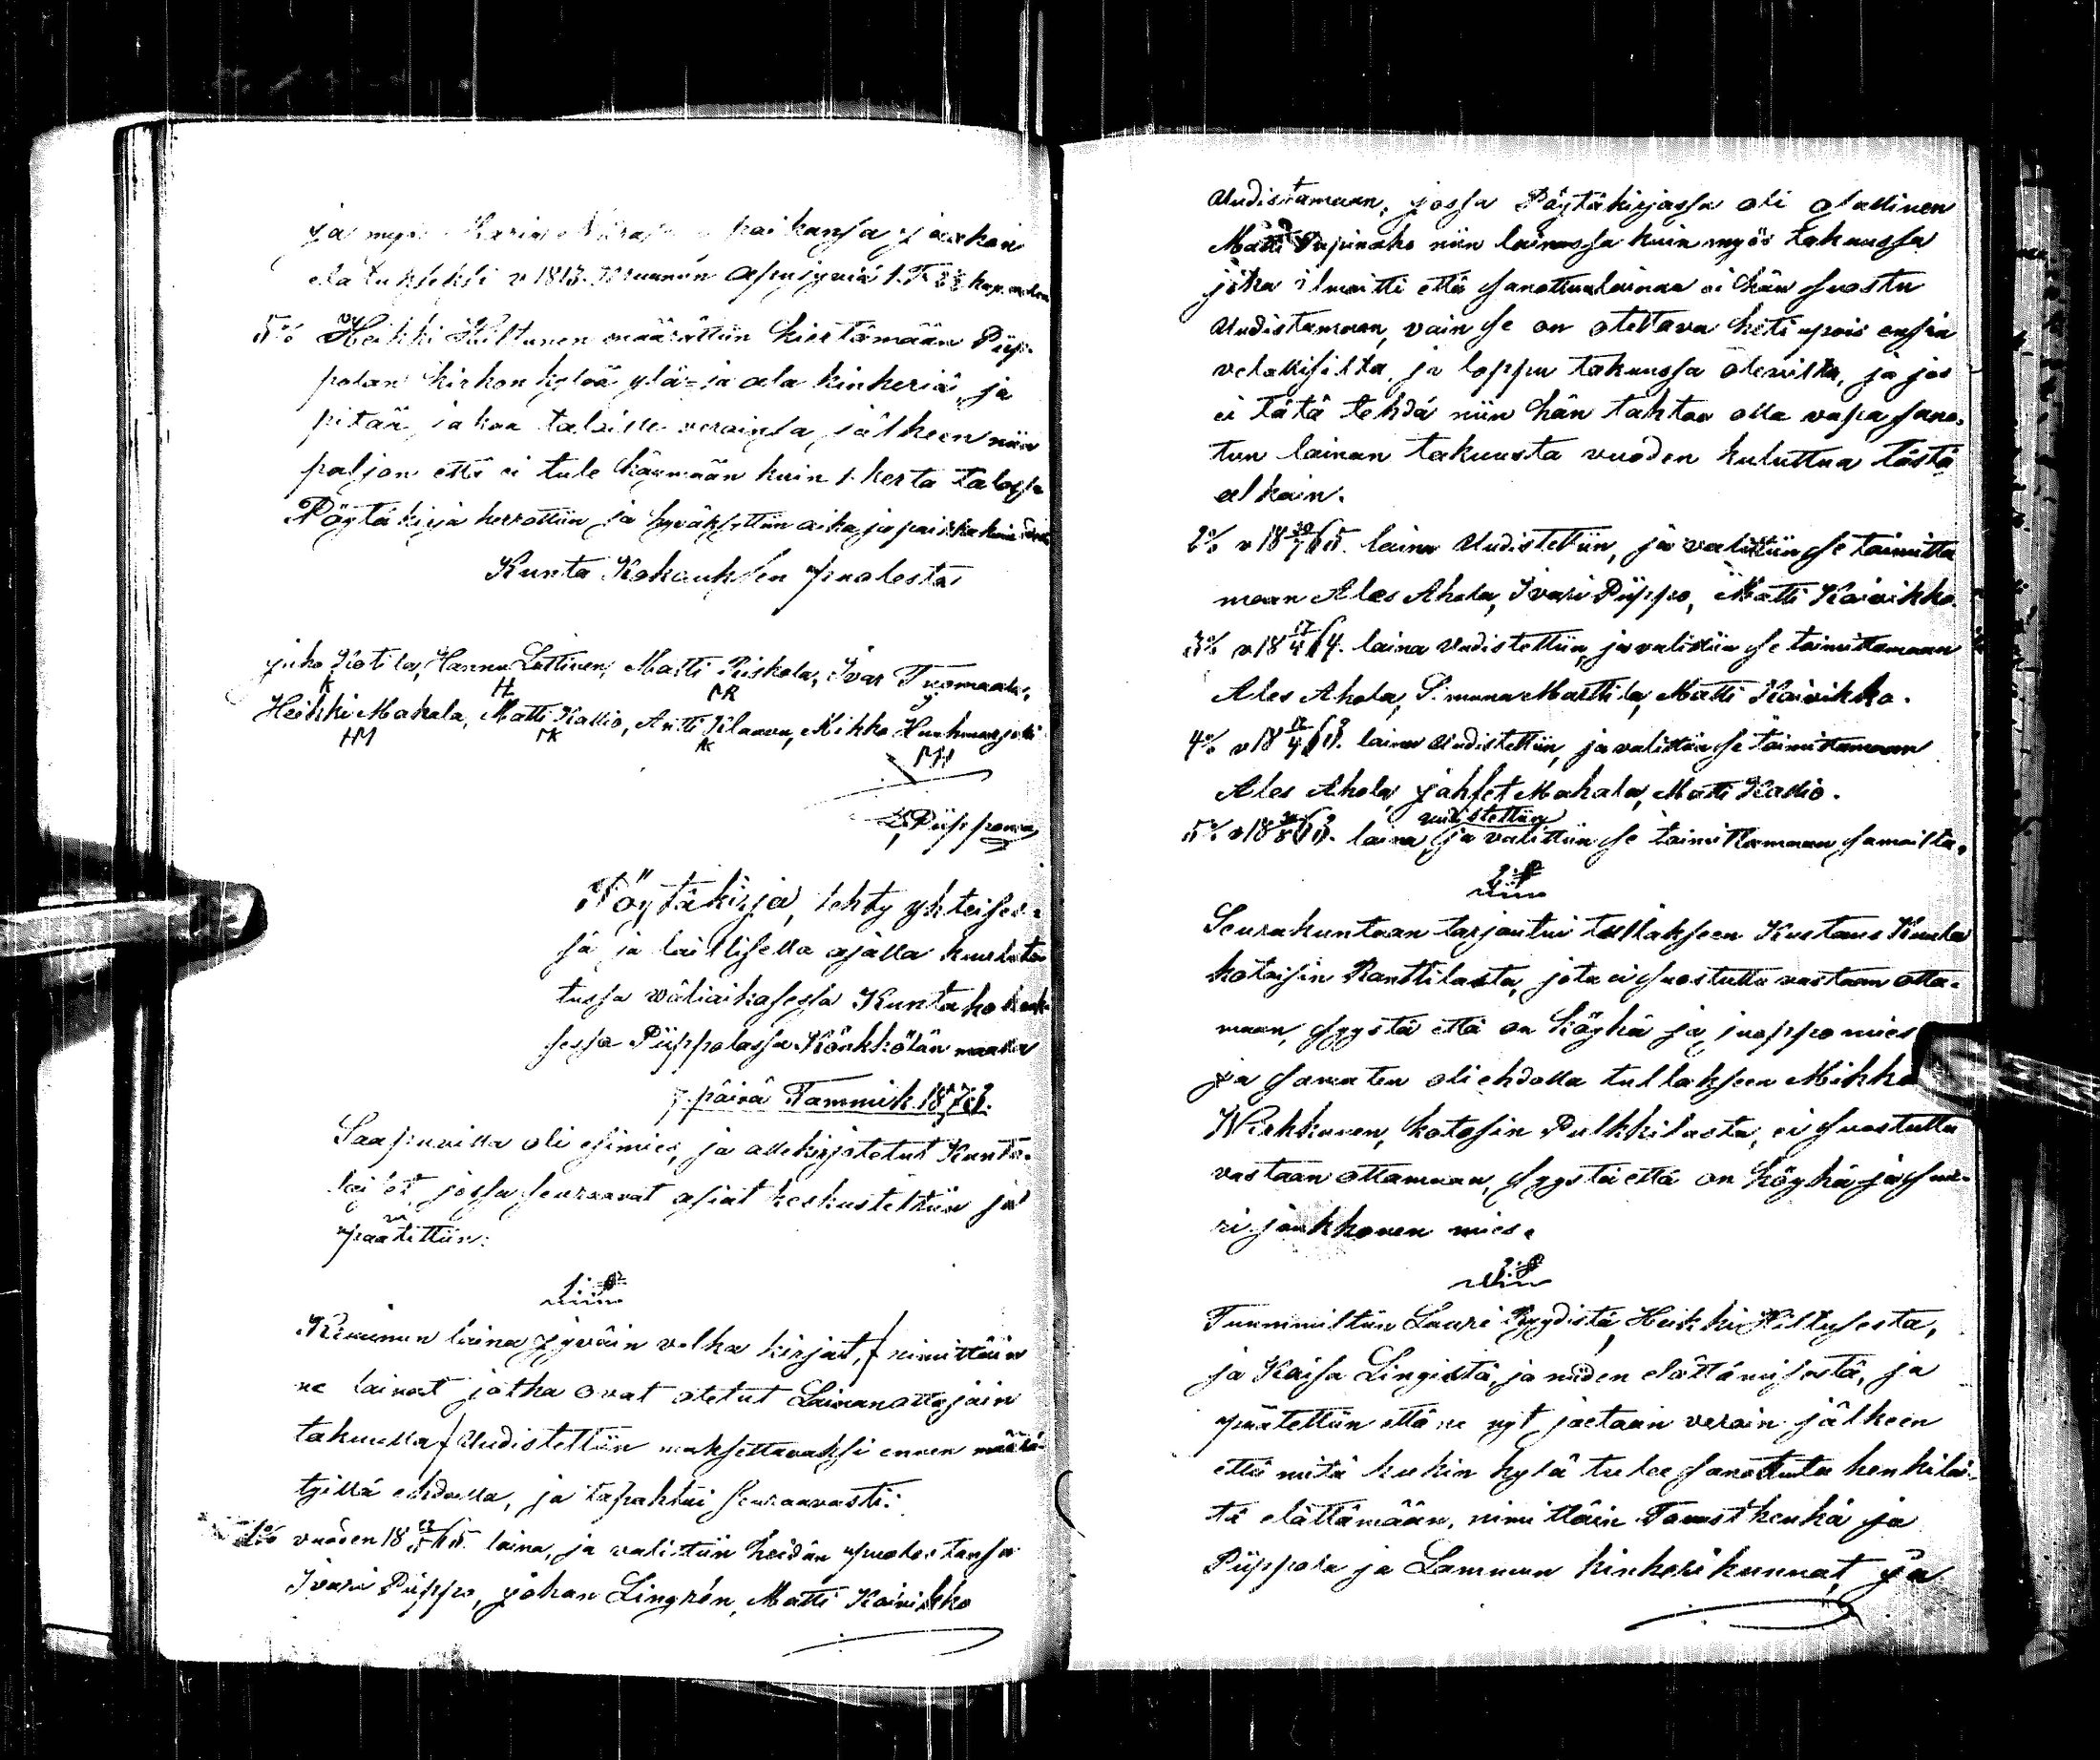 ja myös Maria paikansa jonkon
elatukseksi v 1873. Kruunun apujyviä
5% Heikki Hiltunen määrättiin kiertämään Piip-
polan kirkon kylää ylä- ja ala kinkeriä, ja
pitää jakaa taloille veroinsa jälkeen niin
paljon että ei tule käymään kuin 1. kerta talossa
Pöytäkirja kerrottiin ja hyväksyttiin aika ja paikka kuin
Kunta Kokouksen puolesta
juho Kotila, Hannu Lattinen, Matti Riiskola, Ivar Tuomaala,
K H MR
Heikki Makala, Matti Kallio, Antti Kilaavu, Mikko Huuhmarjoki
HM MK AK MH
Piippoma
Pöytäkirja, tehty yhteises-
sä ja laillisella ajalla kuuluta-
tussa väliaikasessa Kuntakokouk-
sessa Piippolassa Könkkölän maalla
7. päivä Tammik. 1873.
Saapuvilla oli esimies, ja allekirjotetut Kunta-
laiset jossa seuraavat asiat keskusteltiin ja
päätettiin:
1:§
Kruunun laina jyväin velka kirjat, nimittäin
ne lainat jotka ovat otetut Lainanottajain
takuulla Uudistettiin maksettavaksi ennen määrä-
tyillä ehdolla, ja tapahtui seuraavasti:
1% vuoden 18 65. laina, ja valittiin heidän puolestansa
Ivari Piippo, johan Lingrén, Matti Kaivikko
Uudistamaan, jossa Pöytäkirjassa oli osallinen
Matti Papinaho niin lainassa kuin myös takuussa
joka ilmoitti että sanottua lainaa ei hän suostu
Uudistamaan, vain se on otettava heti pois ensin
velallisilta ja loppu takuussa olevilta, ja jos
ei tätä tehdä niin hän tahtoo olla vapa sano-
tun lainan takuusta vuoden kuluttua tästä
alkain.
2% v 18 65. laina Uudistettiin, ja valittiin se toimitta
maan Ales Ahola, Ivari Piippo, Matti Kaivikko.
3% v 18 64. laina Uudistettiin, ja valittiin se toimittamaan
Ales Ahola, Simuna Marttila, Matti Kaivikko.
4% v 18 63. laina Uudistettiin, ja valittiin se toimittamaan
Ales Ahola, jahfet Mahala, Matti Kallio.
uudistettiin
5% v 18 63. laina, ja valittiin se toimittamaan samoilta.
2:§
Seurakuntaan tarjoutui tullakseen Kustaus
kotoisin Ranttilasta, jota ei suostuttu vastaan otta-
maan, syystä että on köyhä ja juoppo mies
ja samaten oli ehdolla tullakseen Mikko
Wirkkunen, kotosin Pulkkilasta, ei suostuttu
vastaan ottamaan, syystä että on köyhä ja suu-
ri joukkonen mies.
3:§
Tuumiittiin Lauri Ryydistä, Heikki Hiltusesta,
ja Kaisa Lingistä, ja niiden elättämisestä, ja
päätettiin että ne nyt jaetaan verain jälkeen
että mitä kukin kylä tulee sanotuita henkilöi-
tä elättämään, nimittäin Tavastkenkä ja
Piippola ja Lamunun kinkerikunnat, ja